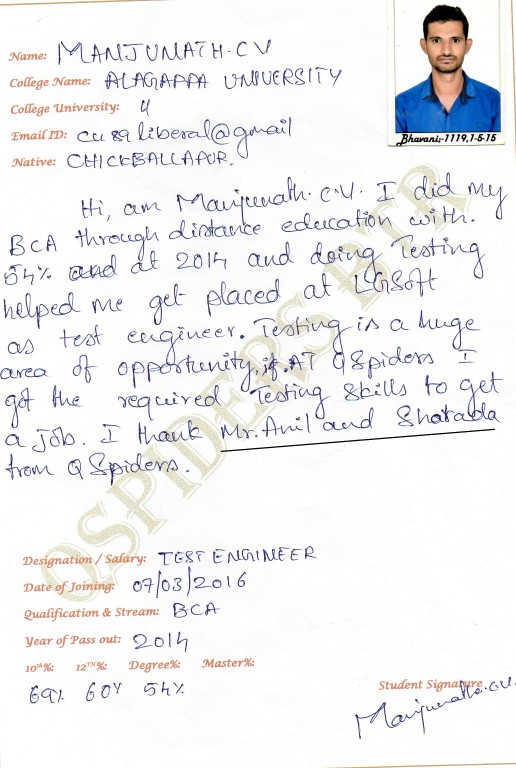 Name: MANJUNATH.C V
College Name: ALAGAPPA UNIVERSITY
College University: 4
Email ID: cu89liberal@gmail
Native: CHICKBALLAPUR.
Bhavani,-1119,1-5-15
Hi, am Manjunath.C.V. I did my
BCA through distance education with.
54% and at 2014 and doing Testing
helped me get placed at LGSoft
as test engineer. Testing is a huge
area of opportunity, if. AT QSpiders I
got the required Testing Skills to get
a job. I thank Mr.Anil and Sharada
from QSpiders.
QSPIDERS BTR
Designation / Salary: TEST ENGINEER
Date of Joining: 07/03/2016
Qualification & Stream: BCA
Year of Pass out: 2014
10th%: 12TH%: Degree%: Master%:
69% 60% 54%
Student Signature
Manjunatha.C.V.